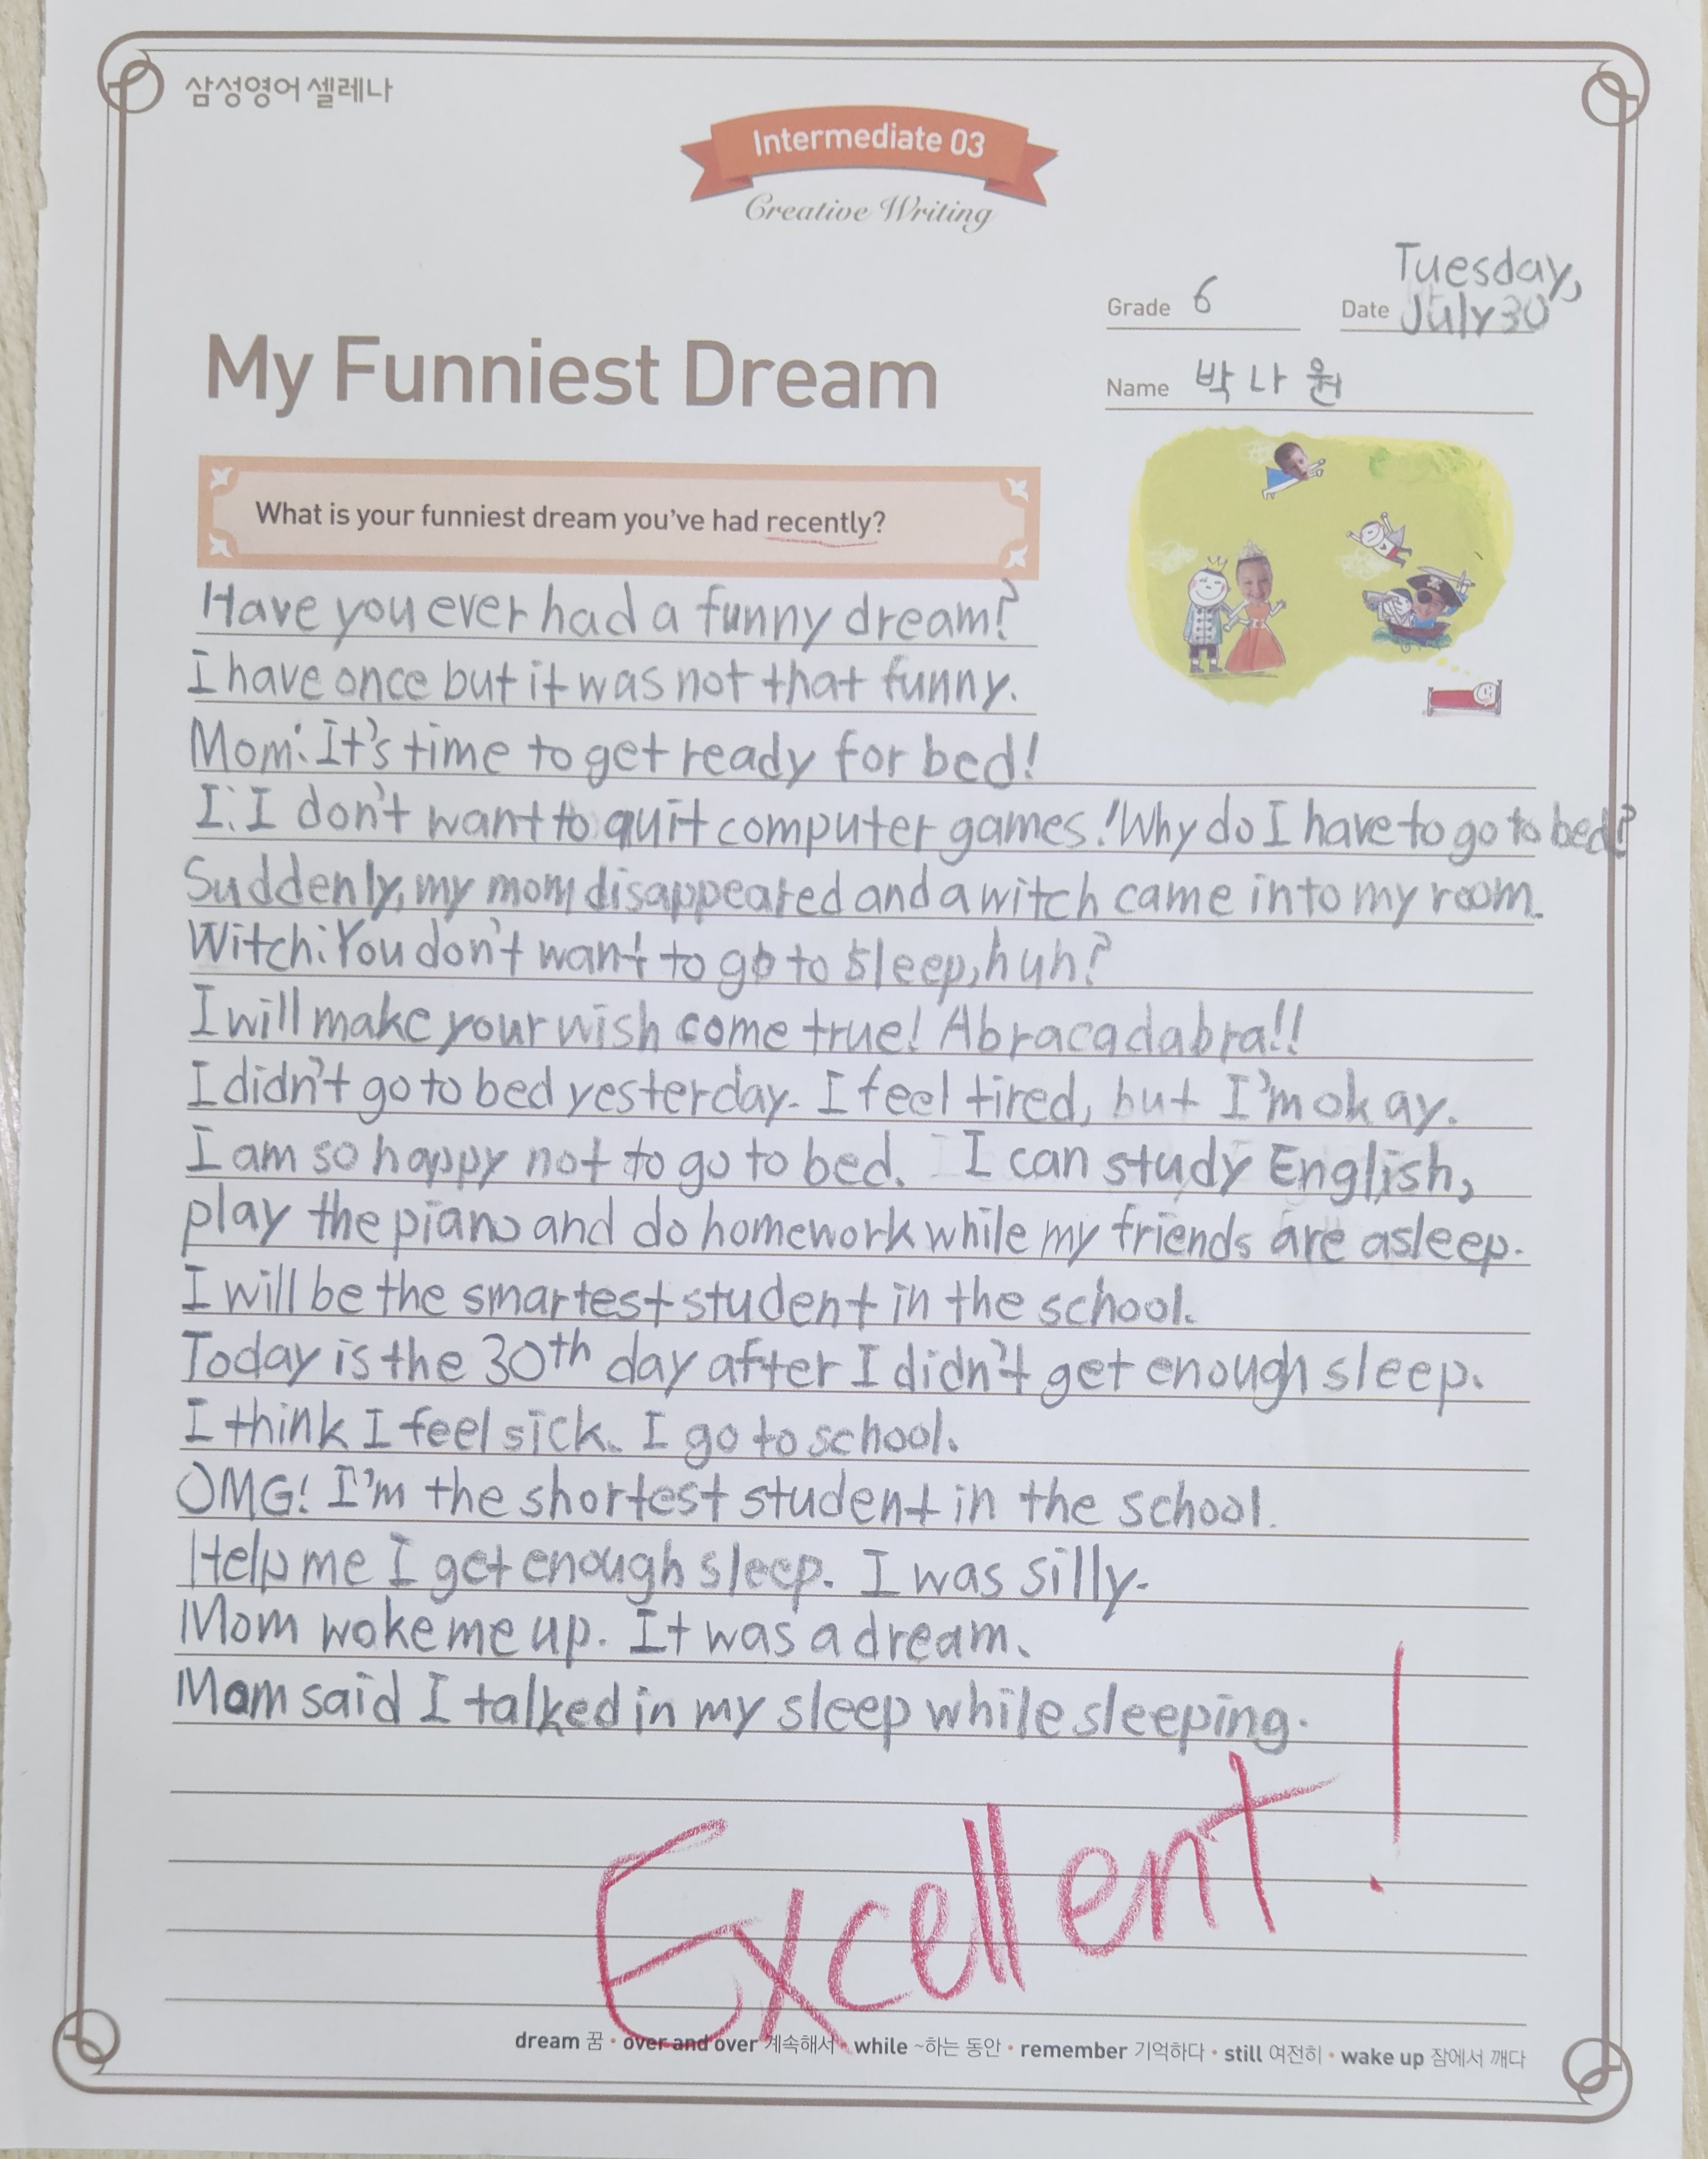 삼성영어 셀레나
Intermediate 03
Creative Writing
Grade 6
Date Tuesday, July 30
My Funniest Dream
Name 박나원
What is your funniest dream you've had recently?
Have you ever had a funny dream?
I have once but it was not that funny.
Mom: It's time to get ready for bed!
I: I don't want to quit computer games.! Why do I have to go to bed?
Suddenly, my mom disappeared and a witch came into my room.
Witch: You don't want to go to sleep, huh?
I will make your wish come true! Abracadabra!!
I didn't go to bed yesterday. I feel tired, but I'm okay.
I am so happy not to go to bed. I can study English,
play the piano and do homework while my friends are asleep.
I will be the smartest student in the school.
Today is the 30th day after I didn't get enough sleep.
I think I feel sick. I go to school.
OMG! I'm the shortest student in the school.
Help me I get enough sleep. I was silly.
Mom woke me up. It was a dream.
Mom said I talked in my sleep while sleeping.
Excellent!
dream 꿈 • over and over 계속해서 • while ~하는 동안 • remember 기억하다 • still 여전히 • wake up 잠에서 깨다